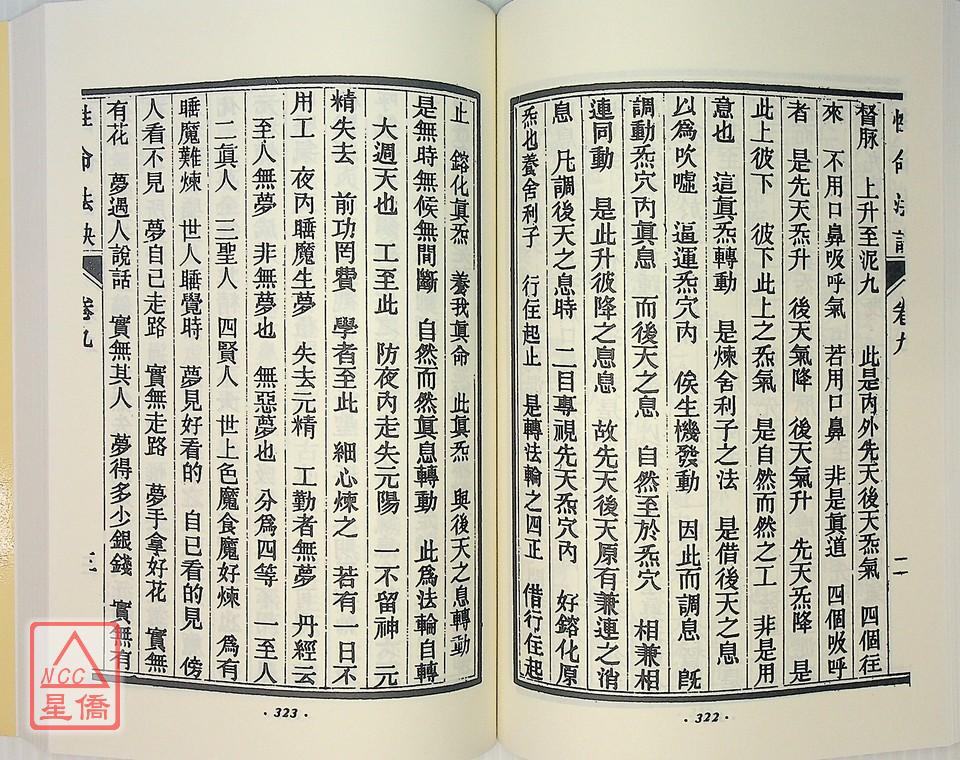 性命法訣
卷九
二
督脉　上升至泥九　此是內外先天後天炁氣　四個往
來　不用口鼻吸呼氣　若用口鼻　非是眞道　四個吸呼
者　是先天炁升　後天氣降　後天氣升　先天炁降　是
此上彼下　彼下此上之炁氣　是自然而然之工　非是用
意也　這眞炁轉動　是煉舍利子之法　是借後天之息
以爲吹噓　逼運炁穴內　俟生機發動　因此而調息　旣
調動炁穴內眞息　而後天之息　自然至於炁穴　相兼相
連同動　是此升彼降之息息　故先天後天原有兼連之消
息　凡調後天之息時　二目專視先天炁穴內　好鎔化原
炁也養舍利子　行住起止　是轉法輪之四正　借行住起
· 322 ·
止　鎔化眞炁　養我眞命　此眞炁　與後天之息轉動
是無時無候無間斷　自然而然眞息轉動　此爲法輪自轉
大週天也　工至此　防夜內走失元陽　一不留神　元
精失去　前功罔費　學者至此　細心煉之　若有一日不
用工　夜內睡魔生夢　失去元精　工勤者無夢　丹經云
至人無夢　非無夢也　無惡夢也　分爲四等　一至人
二眞人　三聖人　四賢人　世上色魔食魔好煉　爲有
睡魔難煉　世人睡覺時　夢見好看的　自已看的見　傍
人看不見　夢自已走路　實無走路　夢手拿好花　實無
有花　夢遇人說話　實無其人　夢得多少銀錢　實無有
性命法訣
卷九
三
· 323 ·
NCC
星僑